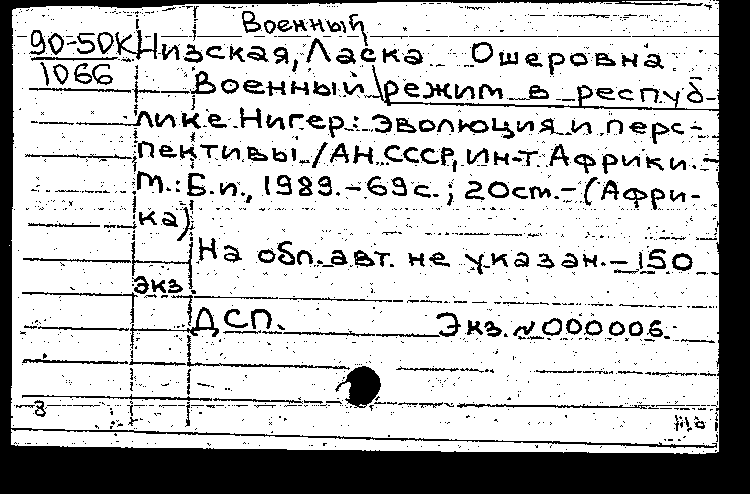 Военный
90-5DK Низская, Ласка Ошеровна
1066 Военный режим в респуб-
лике Нигер: эволюция и перс-
пективы /АН СССР, Ин-т Африки.-
М.: Б.и., 1989.-69с.; 20см.-(Афри-
ка)
На обл. авт. не указан.-150
экз.
ДСП. Экз. №000006.
8